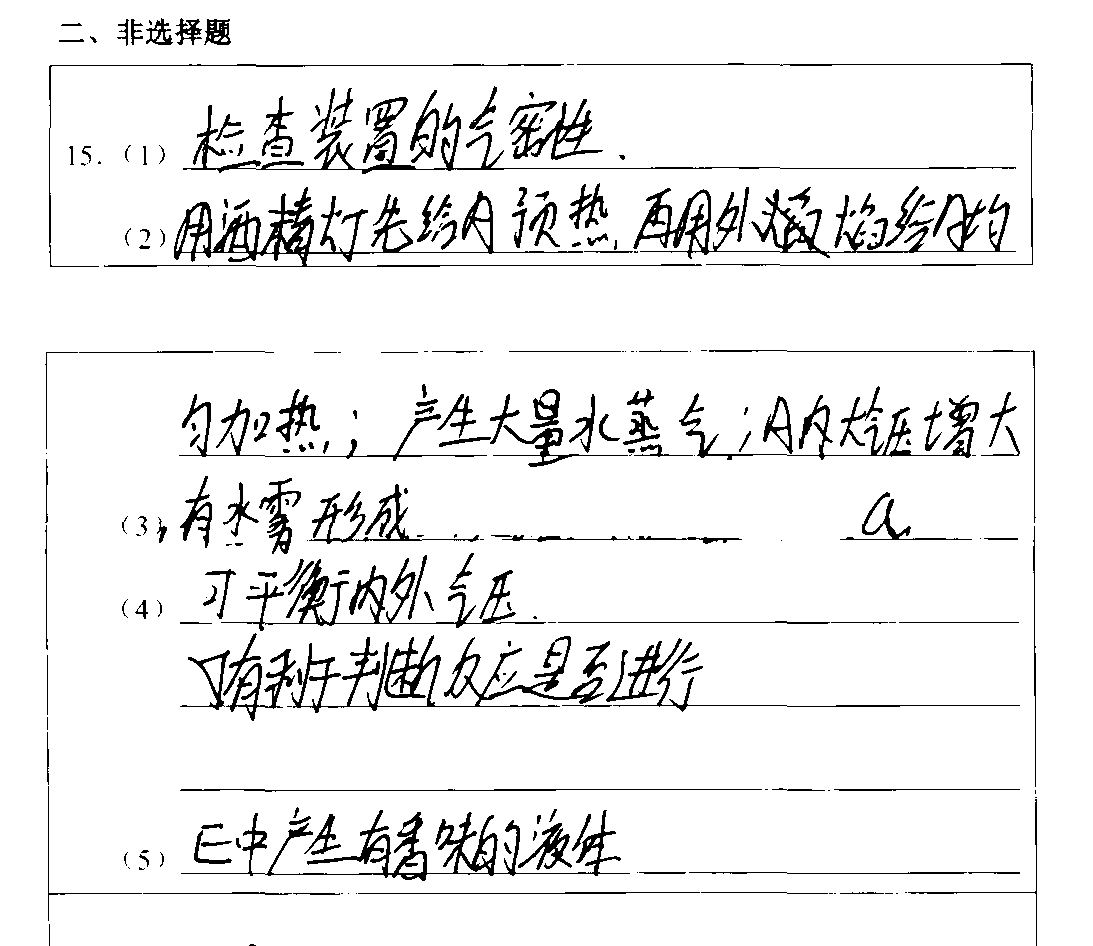 二、非选择题
15.（1）检查装置的气密性.
（2）用酒精灯先给A预热,再用外焰给A均
匀加热；产生大量水蒸气；A内气压增大
（3）有水雾形成 a
（4）可平衡内外气压.
有利于判断反应是否进行
（5）E中产生有香味的液体